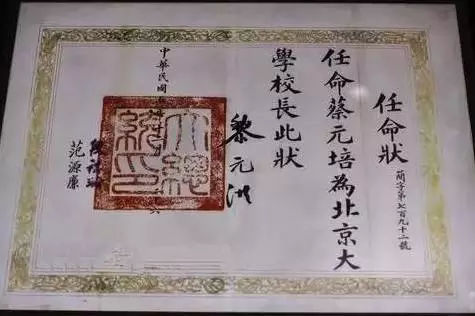 任命狀
簡字第七百九十二號
任命蔡元培為北京大
學校長此狀
黎元洪
大總
統印
中華民國五年十二月
范源廉